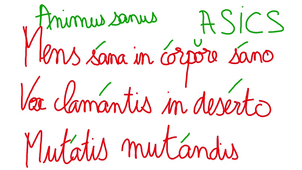 Animus sanus ASICS
Mens sána in córpŏre sáno
Vox clamántis in desérto
Mutátis mutándis